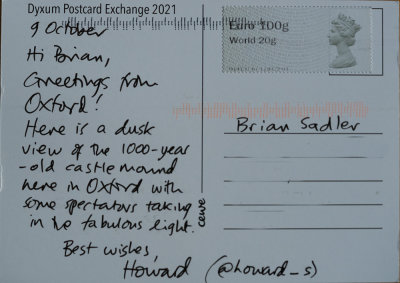 Dyxum Postcard Exchange 2021
9 October
Hi Brian,
Greetings from
Oxford!
Here is a dusk
view of the 1000-year
-old castle mound
here in Oxford with
some spectators taking
in the fabulous light.
Best wishes,
Howard (@howard_s)
cewe
Euro 100g
World 20g
Brian Sadler